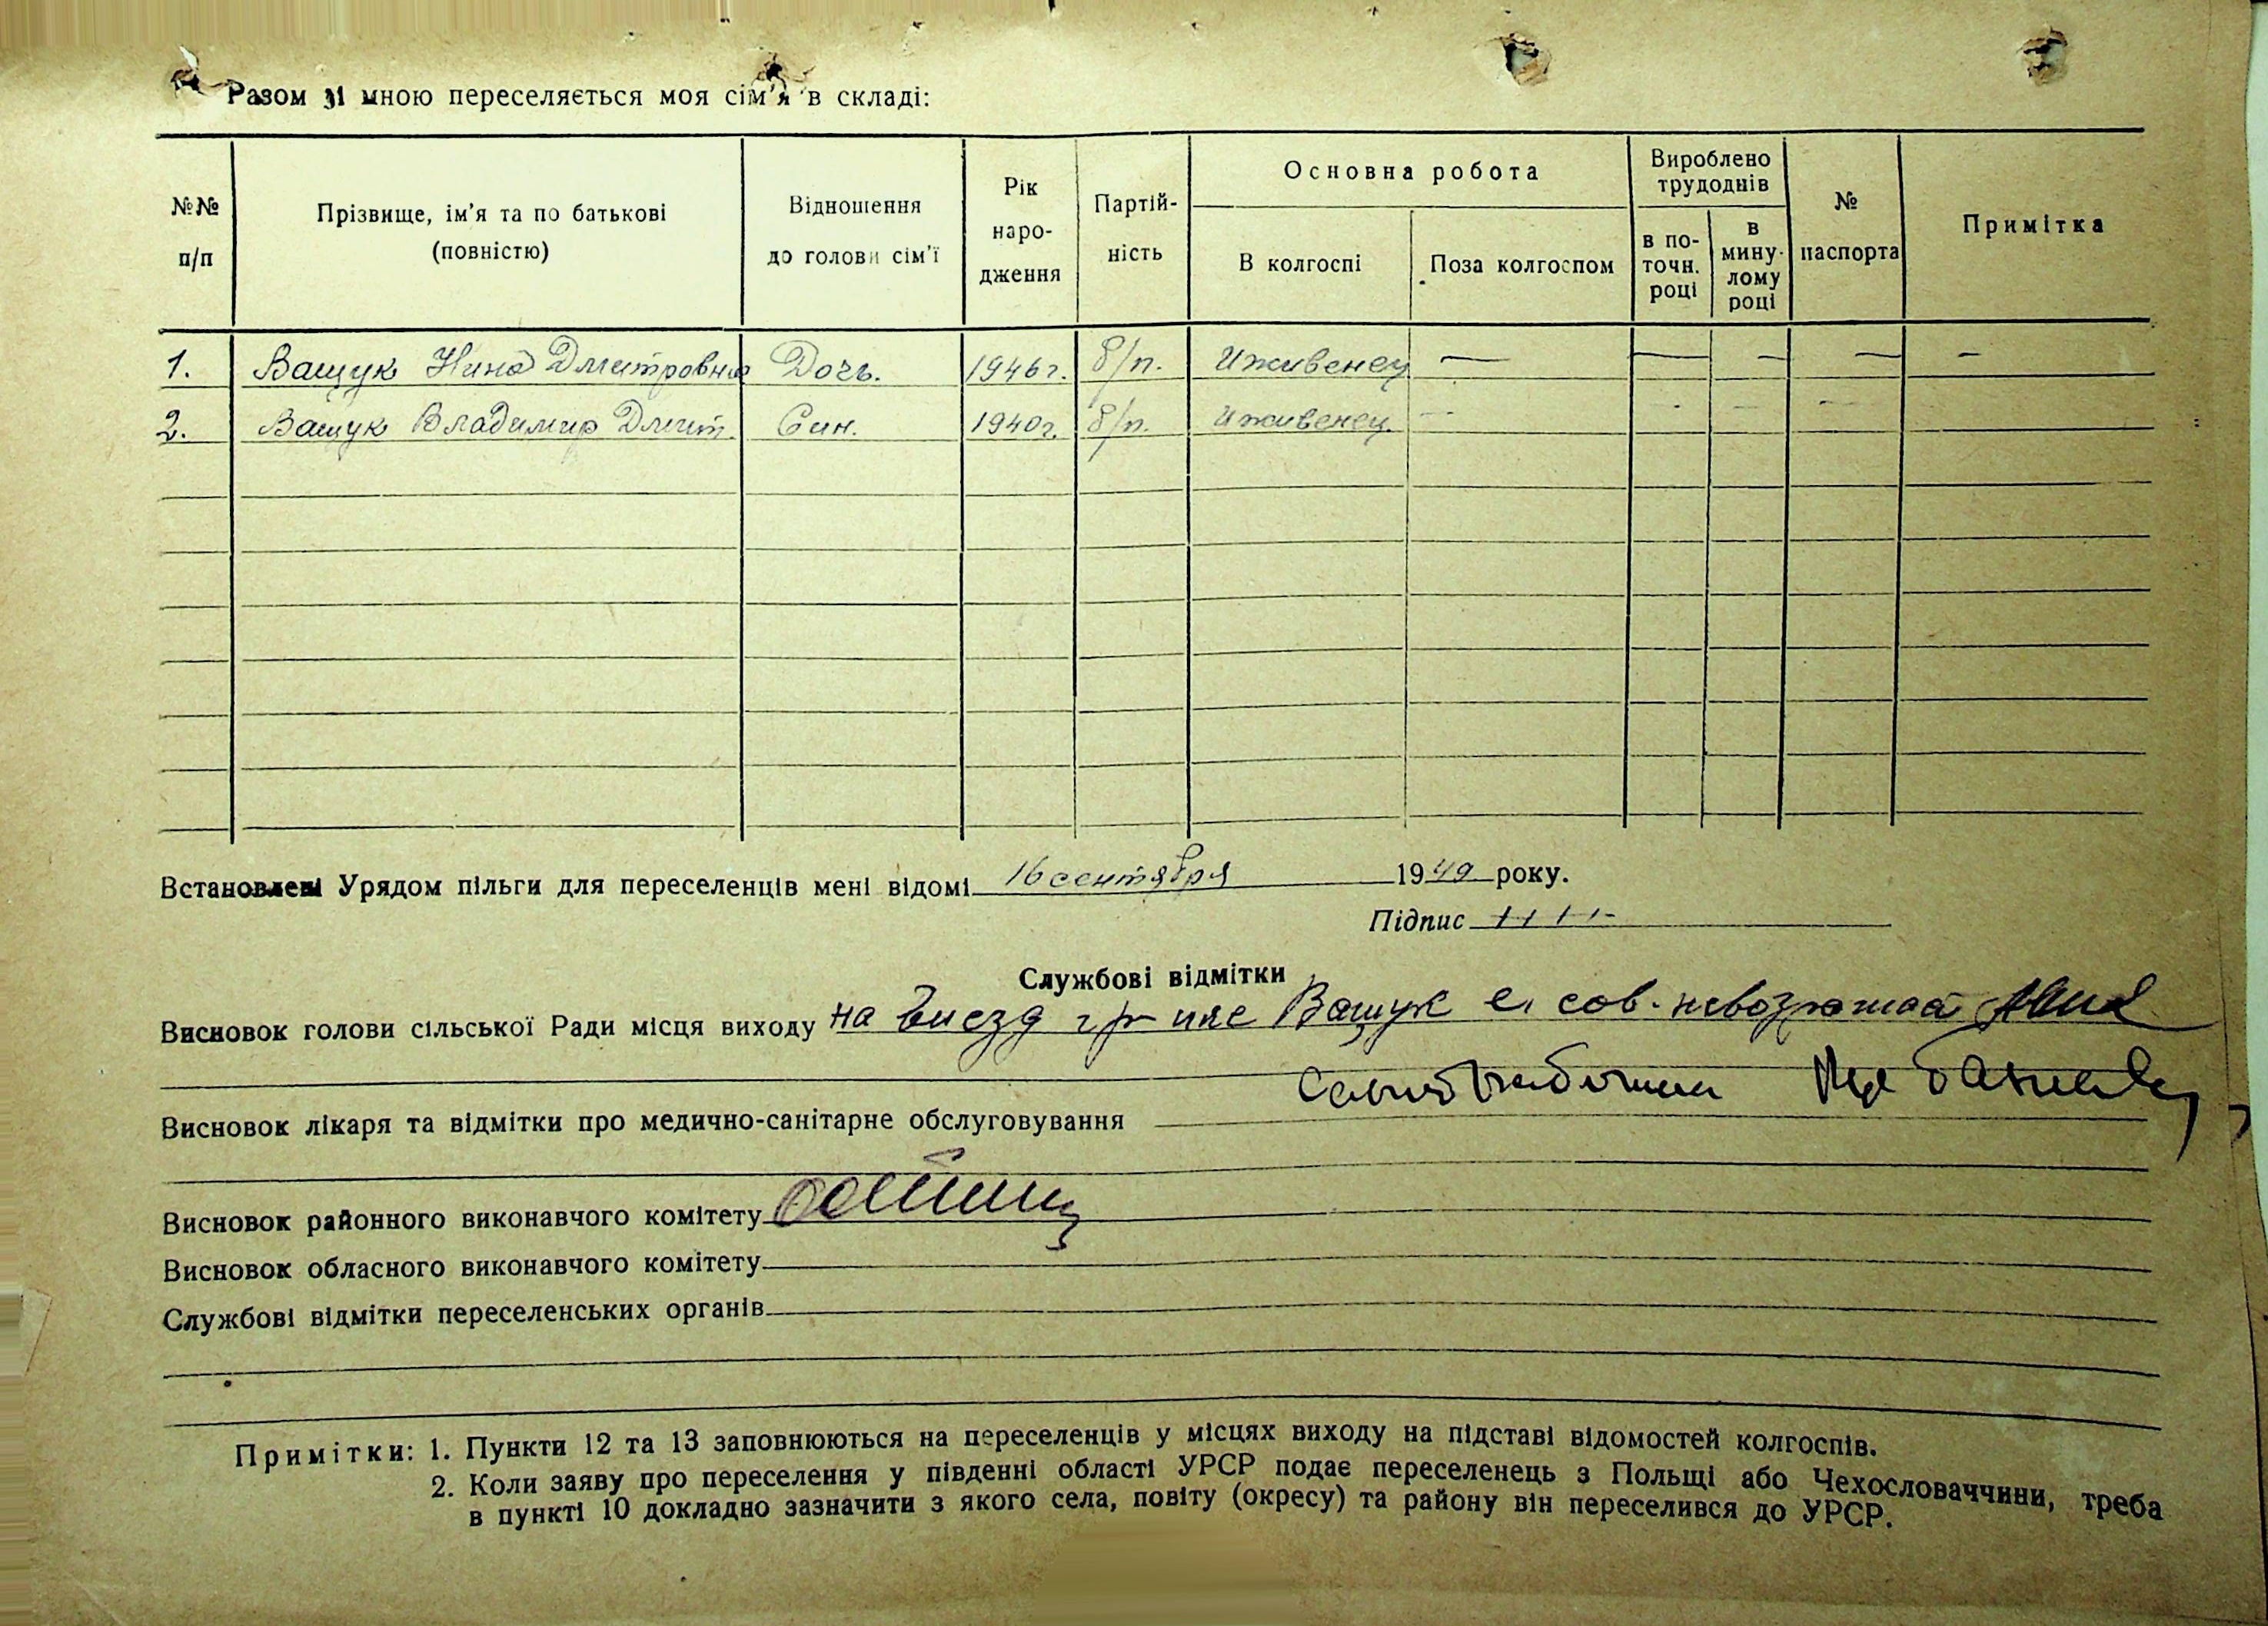 Разом зі мною переселяється моя сім'я в складі:
№№ п/п
Прізвище, ім'я та по батькові (повністю)
Відношення до голови сім'ї
Рік наро-дження
Партій-ність
Основна робота
В колгоспі
Поза колгоспом
Вироблено трудоднів
в по-точн. році
в мину-лому році
№ паспорта
Примітка
1. Ващук Нина Дмитровна Дочь. 1946г. б/п. Иживенец — — — — —
2. Ващук Владимир Дмит. Син. 1940г. б/п. Иживенец. — - — —
Встановлені Урядом пільги для переселенців мені відомі 16 сентября 1949 року.
Підпис
Службові відмітки
Висновок голови сільської Ради місця виходу на виезд Ващук сов.
Висновок лікаря та відмітки про медично-санітарне обслуговування
Висновок районного виконавчого комітету
Висновок обласного виконавчого комітету
Службові відмітки переселенських органів
Примітки: 1. Пункти 12 та 13 заповнюються на переселенців у місцях виходу на підставі відомостей колгоспів.
2. Коли заяву про переселення у південні області УРСР подає переселенець з Польщі або Чехословаччини, треба
в пункті 10 докладно зазначити з якого села, повіту (окресу) та району він переселився до УРСР.